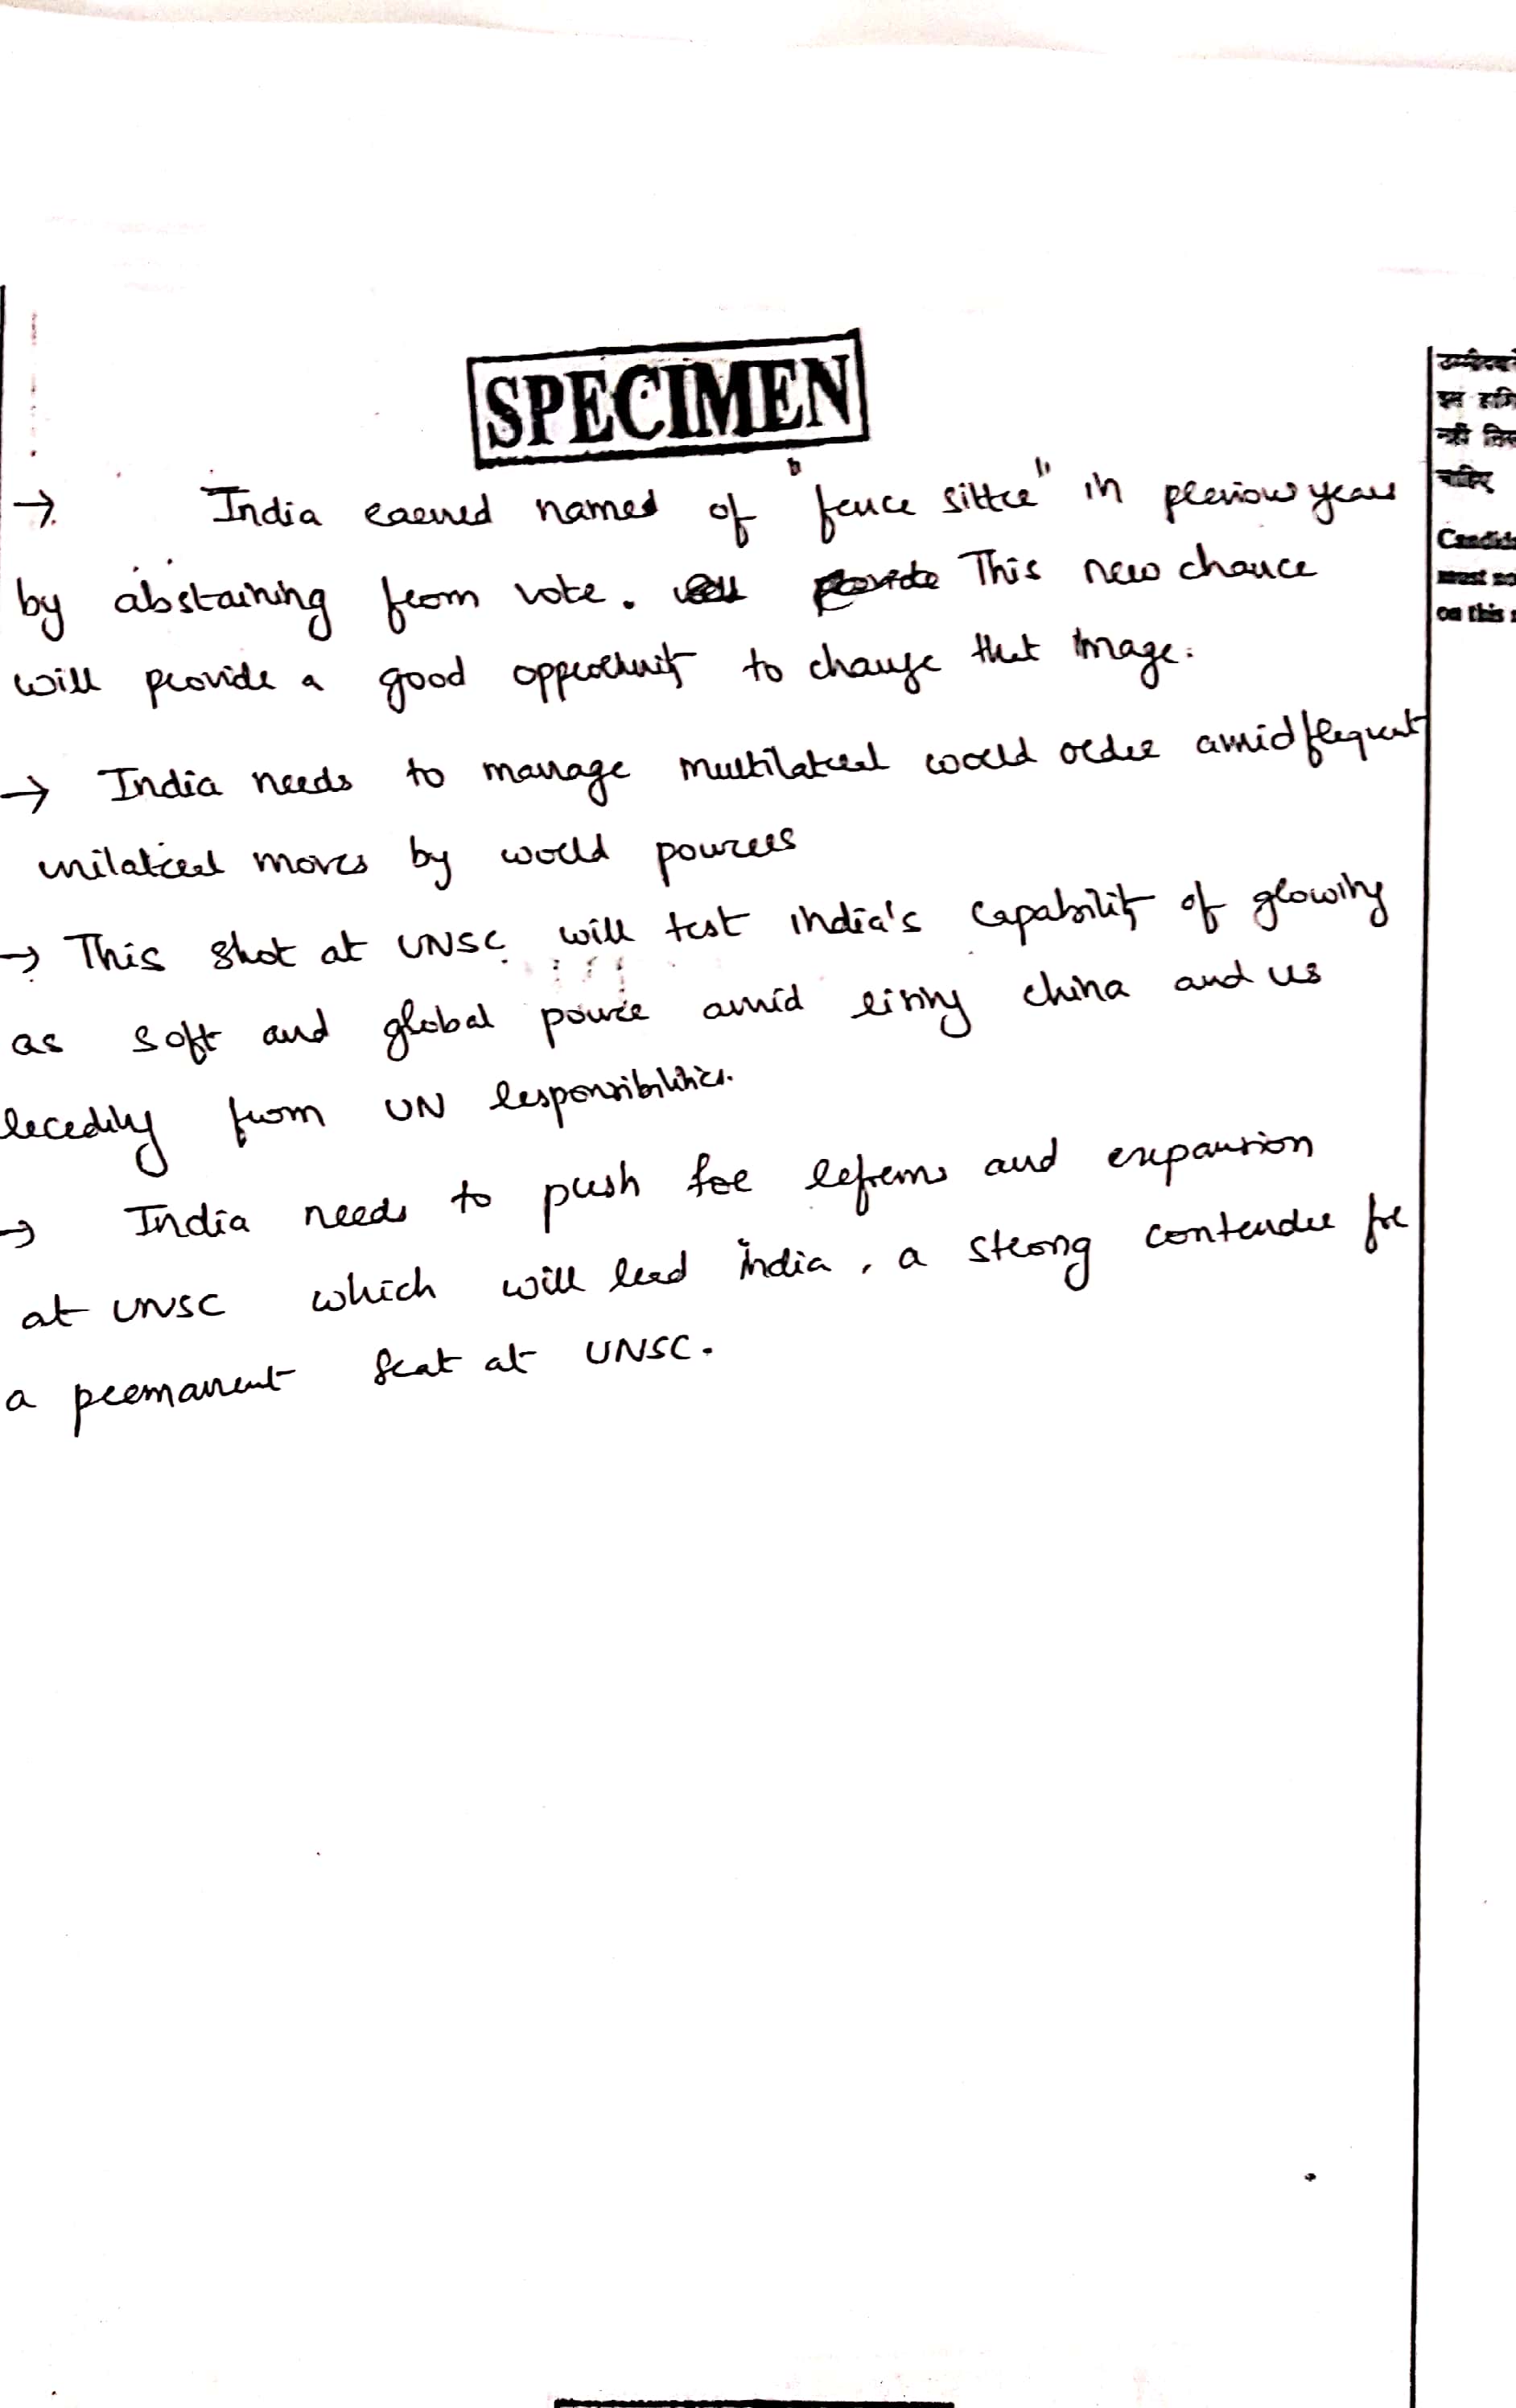 SPECIMEN
→ India earned named of "fence sitter" in previous years
by abstaining from vote. This new chance
will provide a good opportunity to change that image.
→ India needs to manage multilateral world order amid frequent
unilateral moves by world powers
→ This shot at UNSC will test india's capability of growing
as soft and global power amid rising china and US
receding from UN responsibilities.
→ India needs to push for reforms and expansion
at UNSC which will lead india, a strong contender for
a permanent seat at UNSC.
उम्मीदवार
इस हाशि
नहीं लिख
चाहिए
Candida
must no
on this